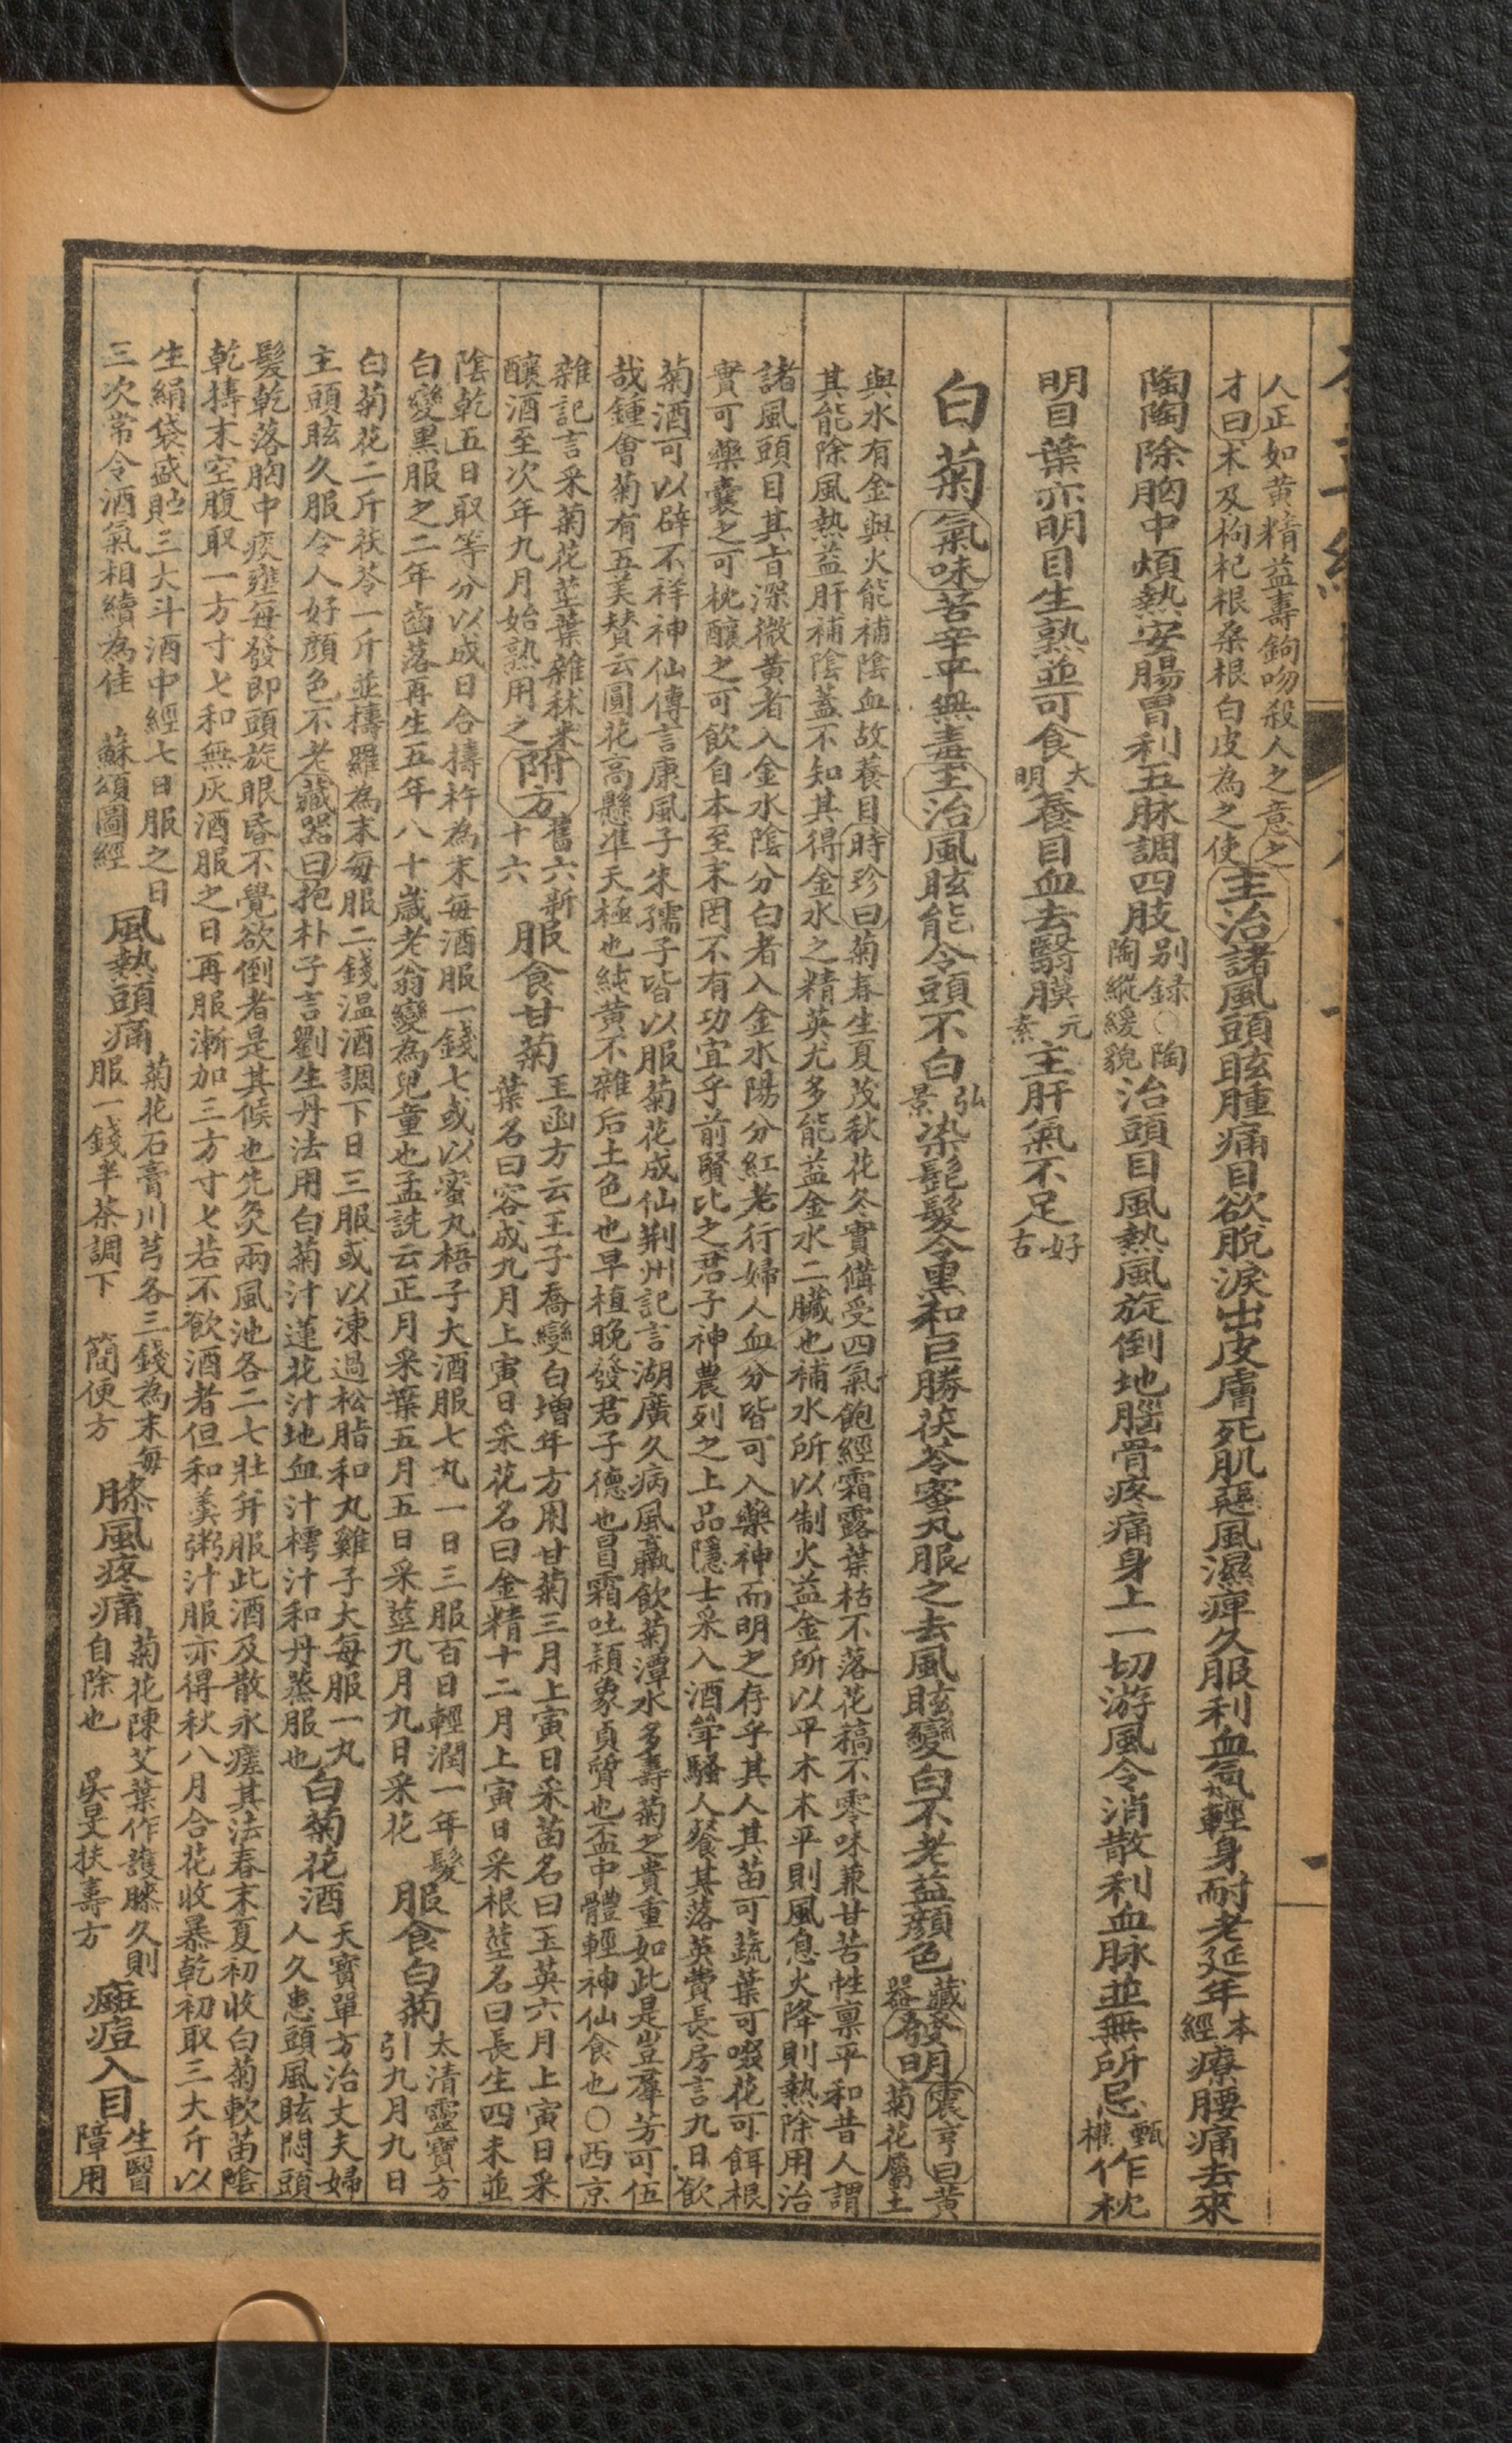 人正如黃精益壽鉤吻殺人之意之
才曰术及枸杞根桑根白皮為之使
主治諸風頭眩腫痛目欲脫淚出皮膚死肌惡風濕痺久服利血氣輕身耐老延年本經療腰痛去來
陶陶除胸中煩熱安腸胃利五脉調四肢别録○陶陶縱緩貌治頭目風熱風旋倒地腦骨疼痛身上一切游風令消散利血脉並無所忌甄權作枕
明目葉亦明目生熟並可食大明養目血去翳膜元素主肝氣不足好古
白菊氣味苦辛平無毒主治風眩能令頭不白弘景染髭髮令黑和巨勝茯苓蜜丸服之去風眩變白不老益顔色藏器發明震亨曰黃菊花屬土
與水有金與火能補陰血故養目時珍曰菊春生夏茂秋花冬實備受四氣飽經霜露葉枯不落花稿不零味兼甘苦性稟平和昔人謂
其能除風熱益肝補陰蓋不知其得金水之精英尤多能益金水二臟也補水所以制火益金所以平木木平則風息火降則熱除用治
諸風頭目其旨深微黃者入金水陰分白者入金水陽分紅者行婦人血分皆可入藥神而明之存乎其人其苗可蔬葉可啜花可餌根
實可藥囊之可枕釀之可飲自本至末罔不有功宜乎前賢比之君子神農列之上品隱士采入酒斝騷人餐其落英費長房言九日飲
菊酒可以辟不祥神仙傳言康風子朱孺子皆以服菊花成仙荆州記言湖廣久病風羸飲菊潭水多壽菊之貴重如此是豈羣芳可伍
哉鍾會菊有五美賛云圓花高懸準天極也純黃不雜后土色也早植晚發君子德也冒霜吐穎象貞質也盃中體輕神仙食也○西京
雜記言采菊花莖葉雜秫米
釀酒至次年九月始熟用之
附方舊六新十六
服食甘菊玉函方云王子喬變白增年方用甘菊三月上寅日采苗名曰玉英六月上寅日采
葉名曰容成九月上寅日采花名曰金精十二月上寅日采根莖名曰長生四末並
陰乾五日取等分以成日合擣杵為末每酒服一錢七或以蜜丸梧子大酒服七丸一日三服百日輕潤一年髮
白變黑服之二年齒落再生五年八十歲老翁變為兒童也孟詵云正月采葉五月五日采莖九月九日采花
服食白菊太清靈寶方引九月九日
白菊花二斤茯苓一斤並擣羅為末每服二錢温酒調下日三服或以凍過松脂和丸雞子大每服一丸
主頭眩久服令人好顔色不老藏器曰抱朴子言劉生丹法用白菊汁蓮花汁地血汁樗汁和丹蒸服也
白菊花酒天寶單方治丈夫婦人久患頭風眩悶頭
髮乾落胸中痰壅每發即頭旋眼昏不覺欲倒者是其候也先灸兩風池各二七壯并服此酒及散永瘥其法春末夏初收白菊軟苗陰
乾擣末空腹取一方寸七和無灰酒服之日再服漸加三方寸七若不飲酒者但和羹粥汁服亦得秋八月合花收暴乾初取三大斤以
生絹袋盛貯三大斗酒中經七日服之日
三次常令酒氣相續為佳　蘇頌圖經
風熱頭痛菊花石膏川芎各三錢為末每服一錢半茶調下　簡便方
膝風疼痛菊花陳艾葉作護膝久則自除也　吳旻扶壽方
癍痘入目生翳障用